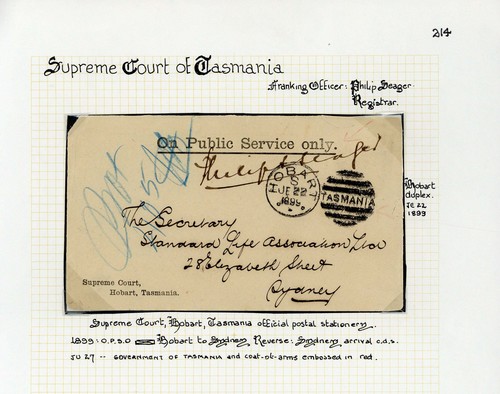 214
Supreme Court of Tasmania
Franking Officer: Philip Seager
Registrar.
On Public Service only.
Philip S Seager
HOBART
S
JE 22
1899
TASMANIA
Hobart
duplex.
JE 22
1899
The Secretary
Standard Life Association Ltd
28 Elizabeth Street
Sydney
Supreme Court,
Hobart, Tasmania.
Supreme Court, Hobart, Tasmania official postal stationery.
1899: O.P.S.O Hobart to Sydney Reverse: Sydney arrival c.d.s.
JU 27 -- GOVERNMENT OF TASMANIA and coat-of-arms embossed in red.